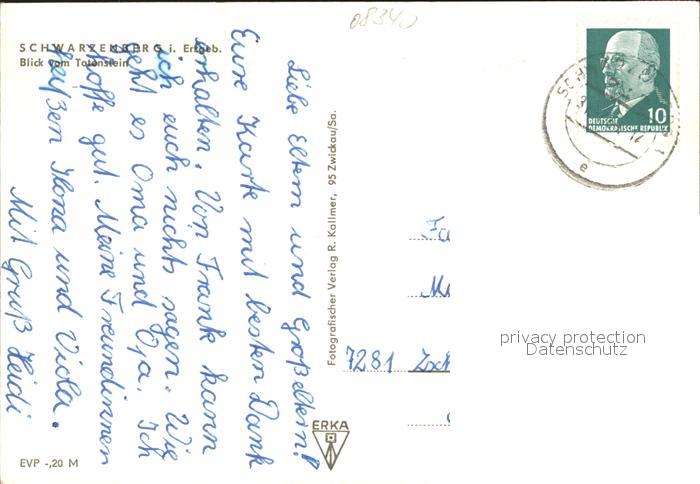 08340
SCHWARZENBERG i. Erzgeb.
Blick vom Totenstein
Liebe Eltern und Großeltern!
Eure Karte mit besten Dank
erhalten. Von Frank kann
ich euch nichts sagen. Wie
geht es Oma und Opa. Ich
hoffe gut. Meine Freundinnen
heißen Ilona und Viola.
Mit Gruß Heidi
EVP -,20 M
Fotografischer Verlag R. Kallmer, 95 Zwickau/Sa.
ERKA
10
DEUTSCHE
DEMOKRATISCHE REPUBLIK
7281 Zsch
privacy protection
Datenschutz